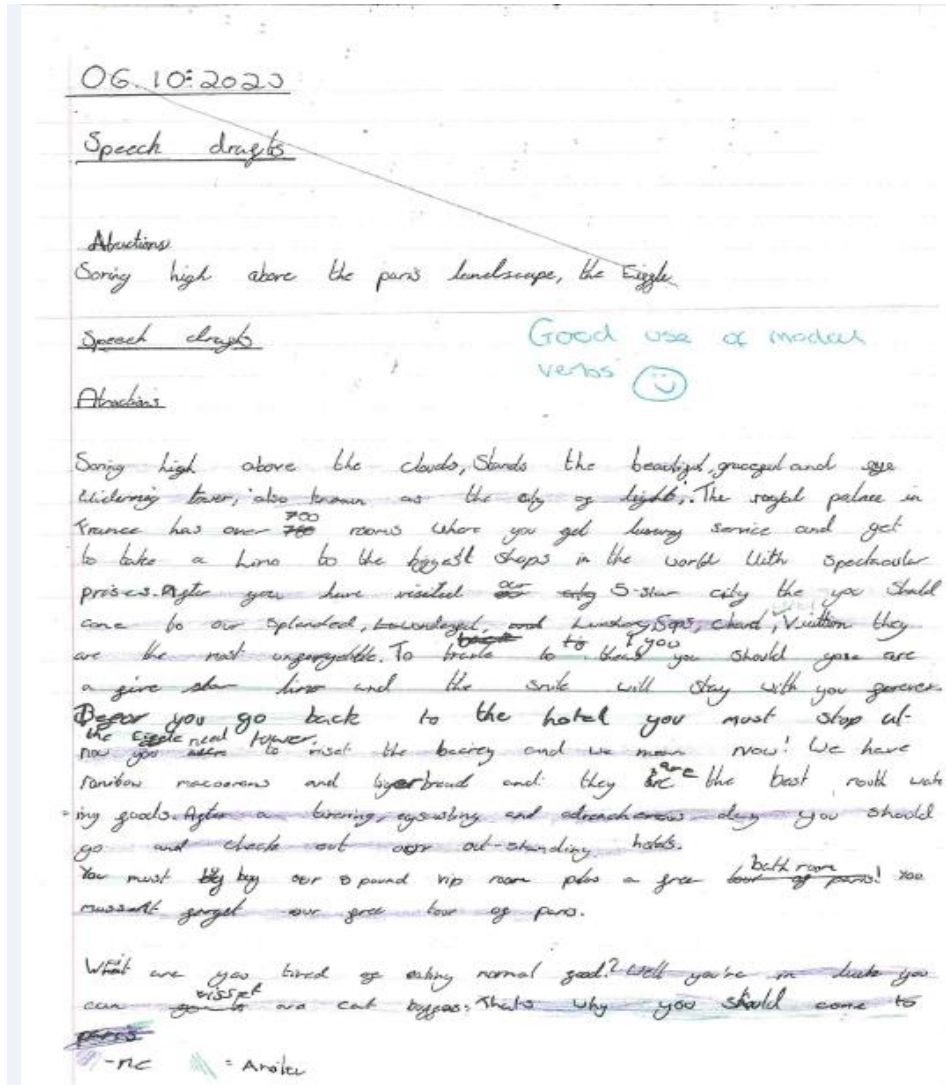 06.10.2023
Speech dragts
Atractions
Soring high above the paris landscape, the Eiggle
Speech dragts
Good use of modal
verbs
Atractions
Soring high above the clouds, Stands the beautigul, gracegul and eye
widerning tower, also known as the city og light,. The royal palace in
France has over 700 rooms where you get luxury service and get
to take a Limo to the biggest Shops in the world With spectacular
prises. Agter you have visited our 5-star city the you Should
come to our splanded, Luxshery Sops, chanel, Viuitton they
are the most ungorgettable. To to you should are
a give star limo and the smile will stay with you gorever.
Begor you go back to the hotel you must stop at
the Eiggle tower.
now you need to viset the and we mean now! We have
ranibow macoorons and and they are the best mouth watr
-ing goods. Agter a tirering, and day you should
go and check out our out-standing hotels.
You must buy our 8 pound vip room plus a gree bath room! You
mussant gorget our gree tour og paris.
Wait are you tired og eating normal good? Well you're in luck you
can visset our cat buggas. Thats why you should come to
paris
-me = Anoiku